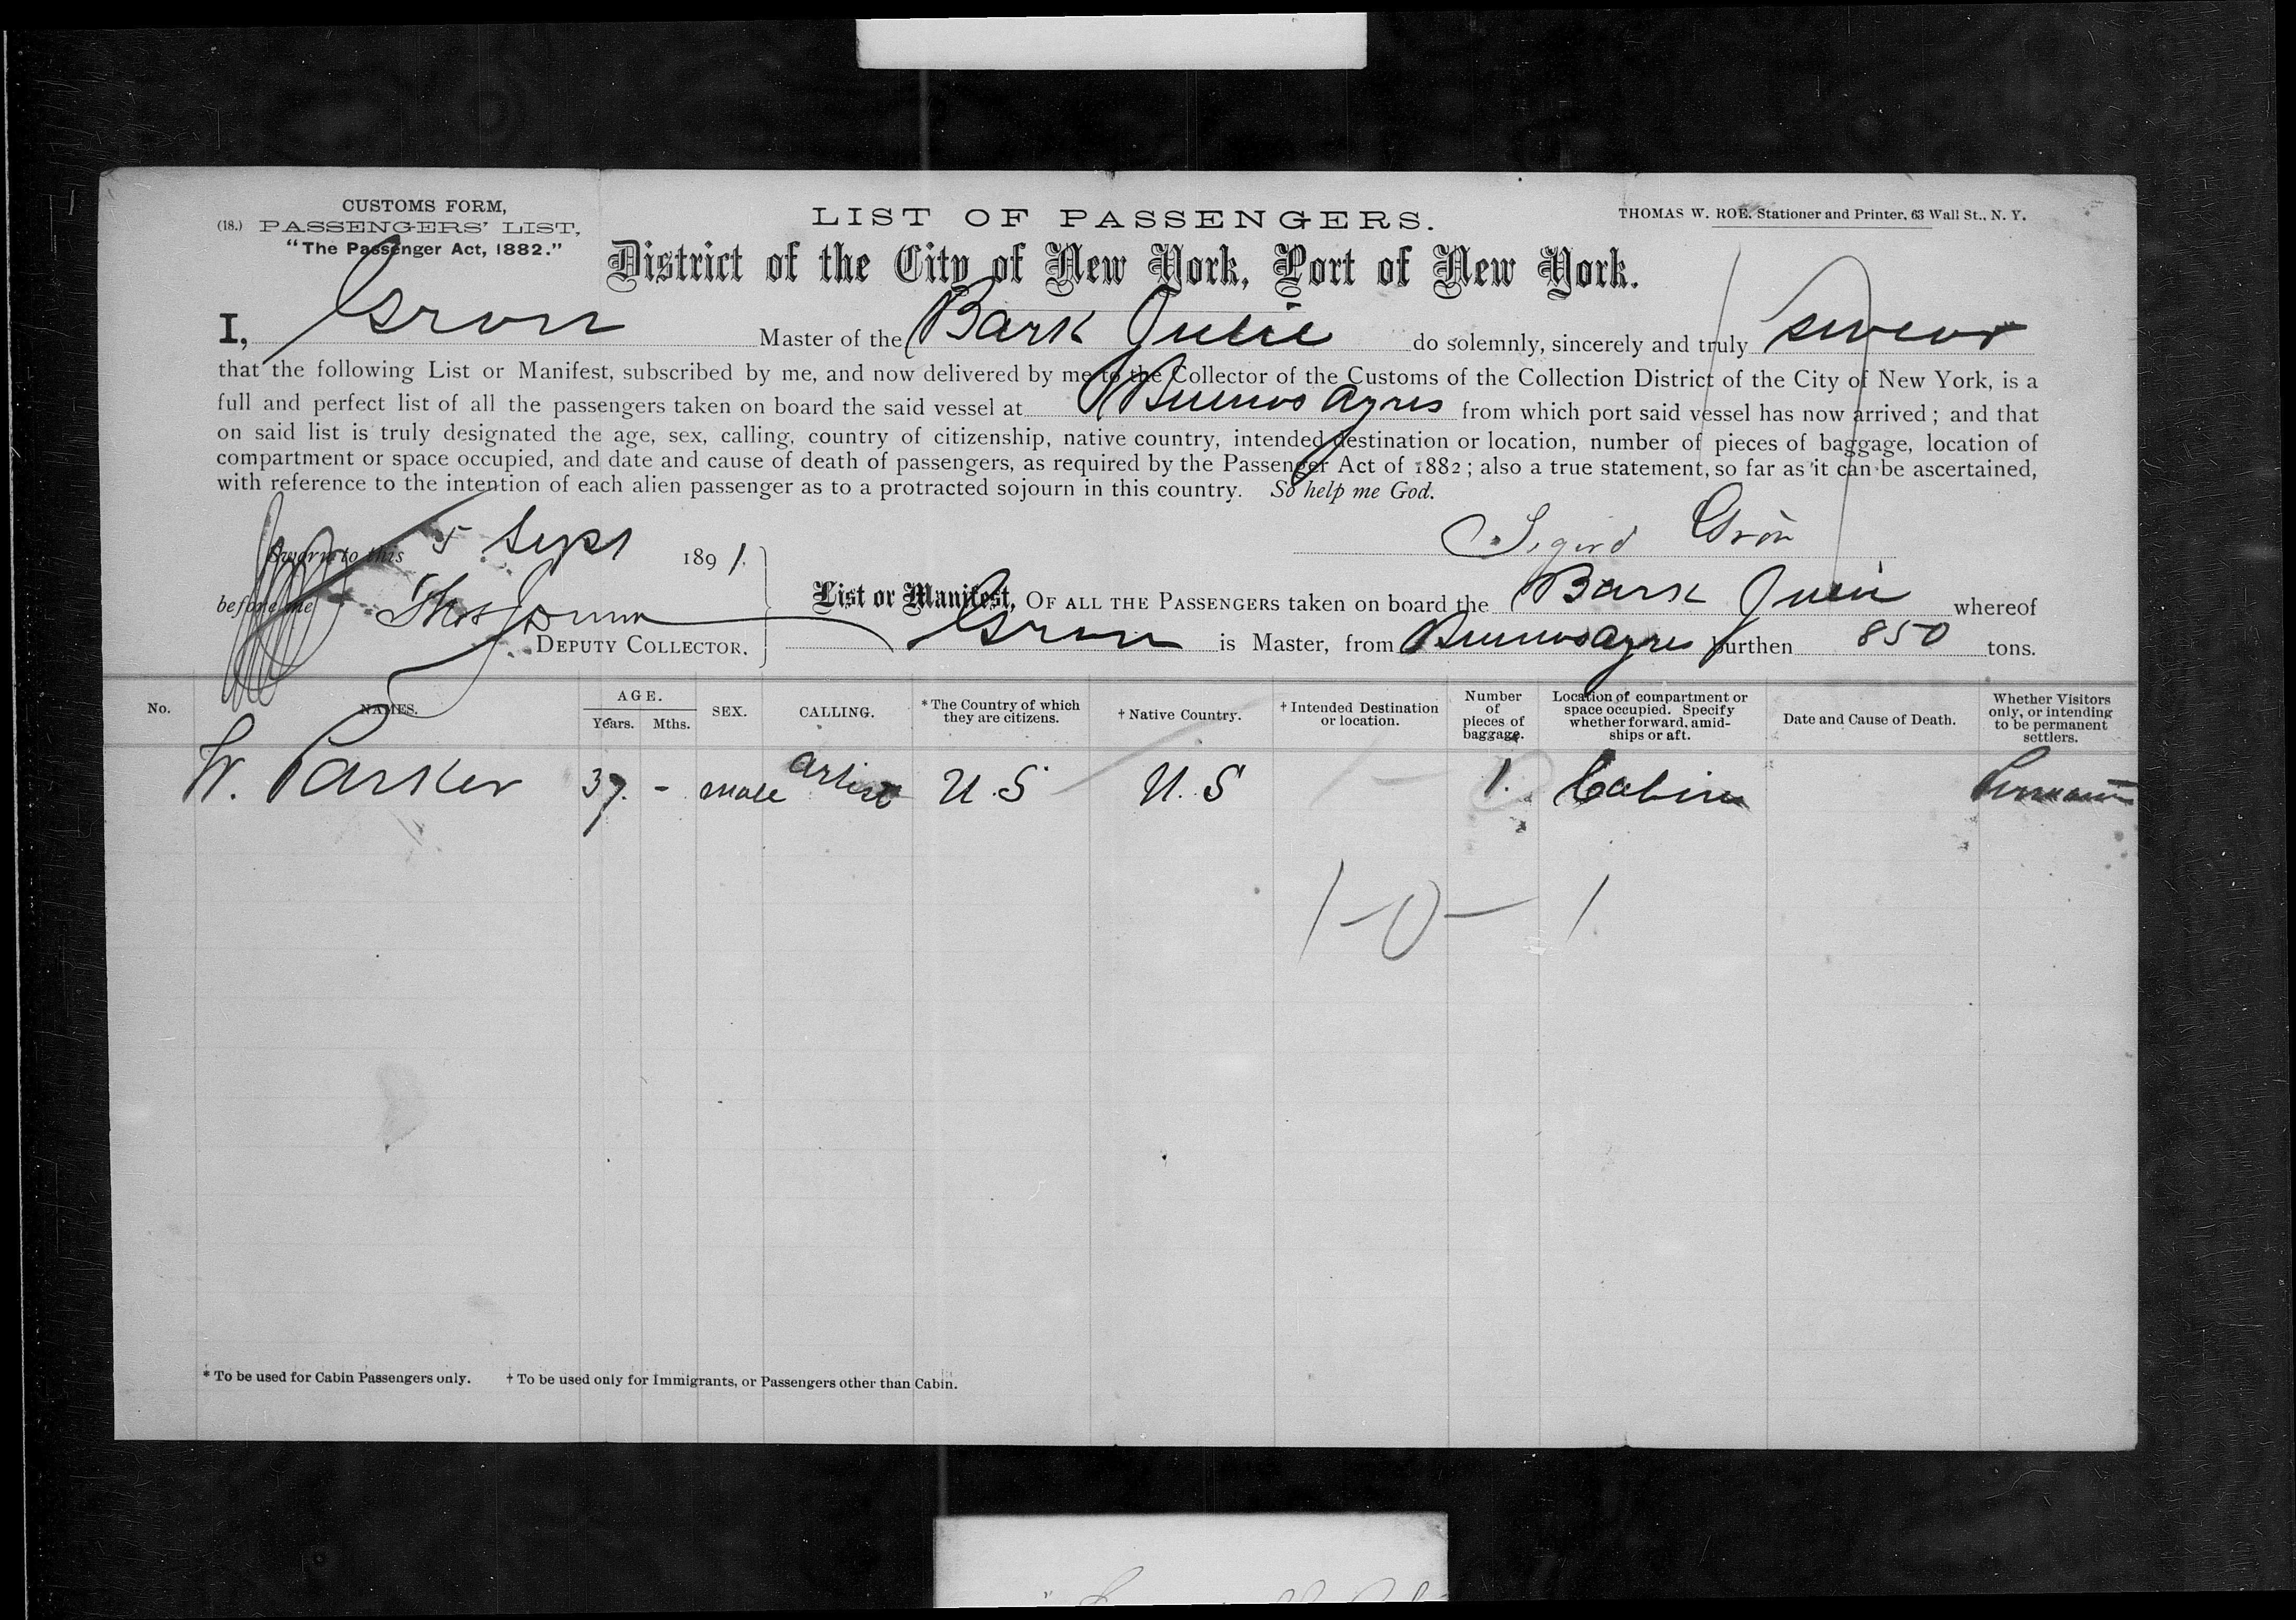 CUSTOMS FORM,
(18.) PASSENGERS' LIST,
"The Passenger Act, 1882."
LIST OF PASSENGERS.
THOMAS W. ROE, Stationer and Printer, 63 Wall St., N. Y.
District of the City of New York, Port of New York.
I, Gron Master of the Bark Julie do solemnly, sincerely and truly swear
that the following List or Manifest, subscribed by me, and now delivered by me to the Collector of the Customs of the Collection District of the City of New York, is a
full and perfect list of all the passengers taken on board the said vessel at Buenos Ayres from which port said vessel has now arrived; and that
on said list is truly designated the age, sex, calling, country of citizenship, native country, intended destination or location, number of pieces of baggage, location of
compartment or space occupied, and date and cause of death of passengers, as required by the Passenger Act of 1882; also a true statement, so far as it can be ascertained,
with reference to the intention of each alien passenger as to a protracted sojourn in this country. So help me God.
Sworn to this 5 Sept 1891.
Sigurd Grön
before me Thos
DEPUTY COLLECTOR.
List or Manifest, OF ALL THE PASSENGERS taken on board the Bark Julie whereof
Gron is Master, from Buenos Ayres burthen 850 tons.
No. NAMES. AGE. Years. Mths. SEX. CALLING. * The Country of which they are citizens. † Native Country. † Intended Destination or location. Number of pieces of baggage. Location of compartment or space occupied. Specify whether forward, amidships or aft. Date and Cause of Death. Whether Visitors only, or intending to be permanent settlers.
W. Parker 37. - male artist U.S U.S 1. Cabin Permanent
1-0-1
* To be used for Cabin Passengers only. † To be used only for Immigrants, or Passengers other than Cabin.